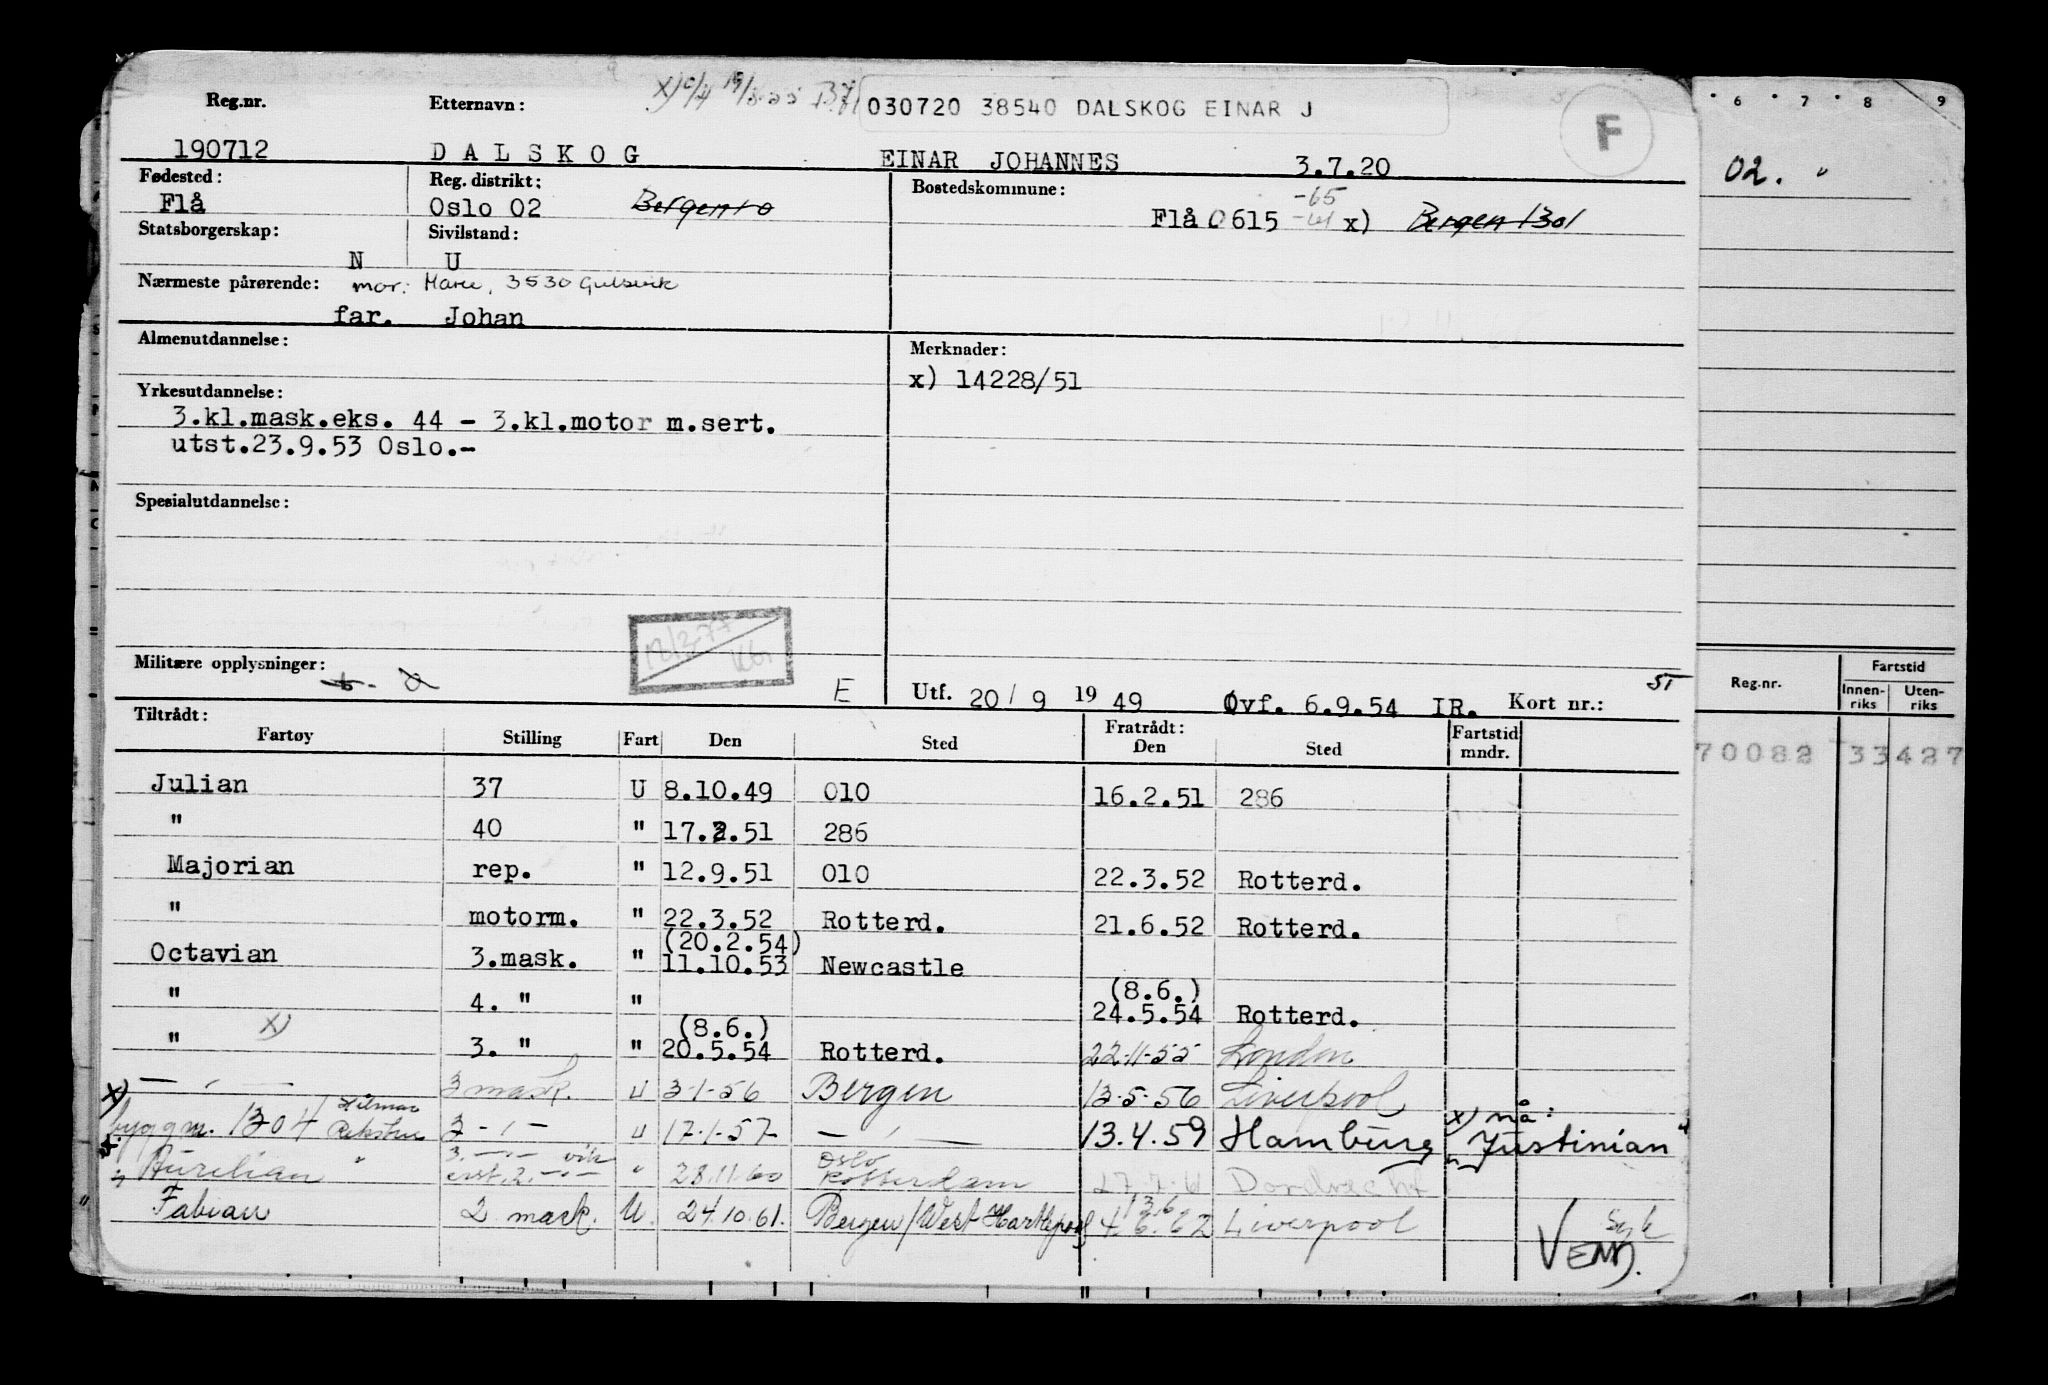 030720 38540 DALSKOG EINAR J
F
Reg.nr. Etternavn:
190712 DALSKOG EINAR JOHANNES 3.7.20
Fødested: Reg. distrikt: Bostedskommune:
Flå Oslo 02 Flå 0615 -65 x) Bergen 1301
Statsborgerskap: Sivilstand:
N U
Nærmeste pårørende: mor: 3530 Gulsvik
far. Johan
Almenutdannelse: Merknader:
x) 14228/51
Yrkesutdannelse:
3.kl.mask.eks. 44 - 3.kl.motor m.sert.
utst.23.9.53 Oslo.-
Spesialutdannelse:
Militære opplysninger:
E Utf. 20/ 9 19 49 Øvf. 6.9.54 IR. Kort nr.: 51
Tiltrådt: Fratrådt:
Fartøy Stilling Fart Den Sted Den Sted Fartstid mndr.
Julian 37 U 8.10.49 010 16.2.51 286
" 40 " 17.2.51 286
Majorian rep. " 12.9.51 010 22.3.52 Rotterd.
" motorm. " 22.3.52 Rotterd. 21.6.52 Rotterd.
(20.2.54)
Octavian 3.mask. " 11.10.53 Newcastle
(8.6.)
" 4. " " 24.5.54 Rotterd.
x) (8.6.)
" 3. " " 20.5.54 Rotterd. 22.11.55 London
— , — 3 mask. u 3-1-56 Bergen 13-5-56 Liverpool
x) byggnr. 1304 Hilmar Reksten 3 - , - u 17-1-57 — , — 13.4.59 Hamburg x) nå: "Justinian"
Aurelian " 28.11.60 Oslo Rotterdam Dordrecht
Fabian 2 mask. U. 24.10.61. Bergen/West Hartlepool 4.6.62 13.6 Liverpool syk
VEND.
6 7 8 9
02. "
Reg.nr. Fartstid
Innen-riks Uten-riks
70082 33427